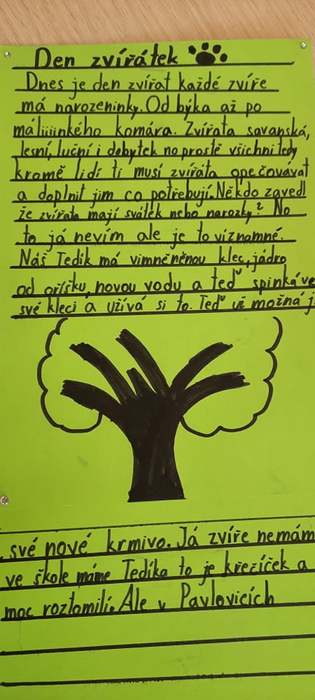 Den zvířátek
Dnes je den zvířat každé zvíře
má narozeninky. Od býka až po
máliiiinkého komára. Zvířata savanská,
lesní, luční i dobytek no prostě všichni tedy
kromě lidí ti musí zvířata opečovávat
a doplnit jim co potřebují. Někdo zavedl
že zvířata mají svátek nebo narozky? No
to já nevím ale je to významné.
Náš Tedík má vimněněnou klec, jádro
od oříšku, novou vodu a teď spinká ve
své kleci a užívá si to. Teď už možná j
své nové krmivo. Já zvíře nemám
ve škole máme Tedíka to je křečíček a
moc roztomilí. Ale v Pavlovicích